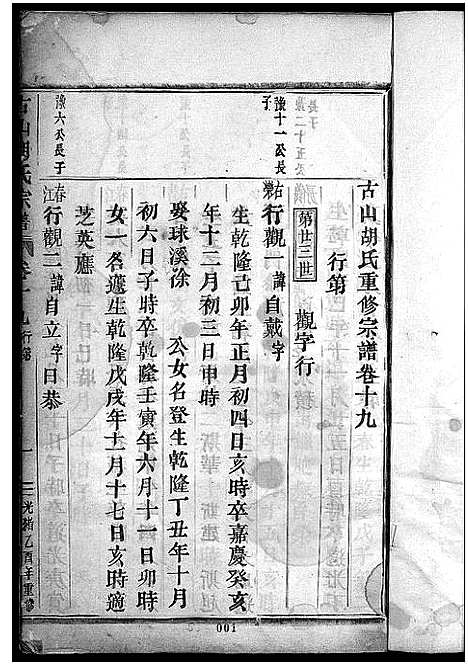 古山胡氏重修宗譜卷十九
行第
第廿三世　觀字行
豫十一公長子
右崇行觀一諱自戴字
生乾隆己卯年正月初四日亥時卒嘉慶癸亥
年十二月初三日申時
娶球溪徐　公女名登生乾隆丁丑年十月
初六日子時卒乾隆壬寅年六月十一日卯時
女一名蘧生乾隆戊戌年十二月十七日亥時適
芝英應
豫六公長子
春江行觀二諱自立字日恭
光緒乙酉年重修
001